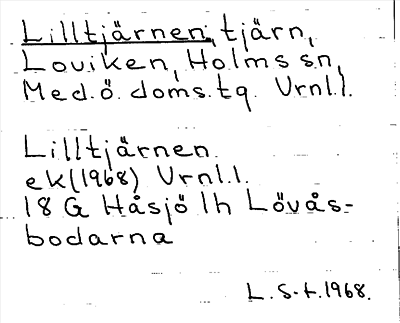 Lilltjärnen, tjärn,
Loviken, Holms sn,
Med.ö. doms.tg. Vrnl.l.
Lilltjärnen
ek(1968) Vrnl.l.
18 G Håsjö 1h Lövås-
bodarna
L. S-t. 1968.